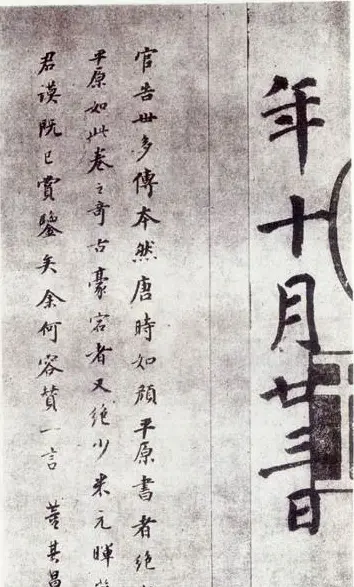 年十月廿三日
官告世多傳本然唐時如顔平原書者絶
平原如此卷之奇古豪宕者又絶少米元暉
君謨既已賞鑒矣余何容贊一言 董其昌